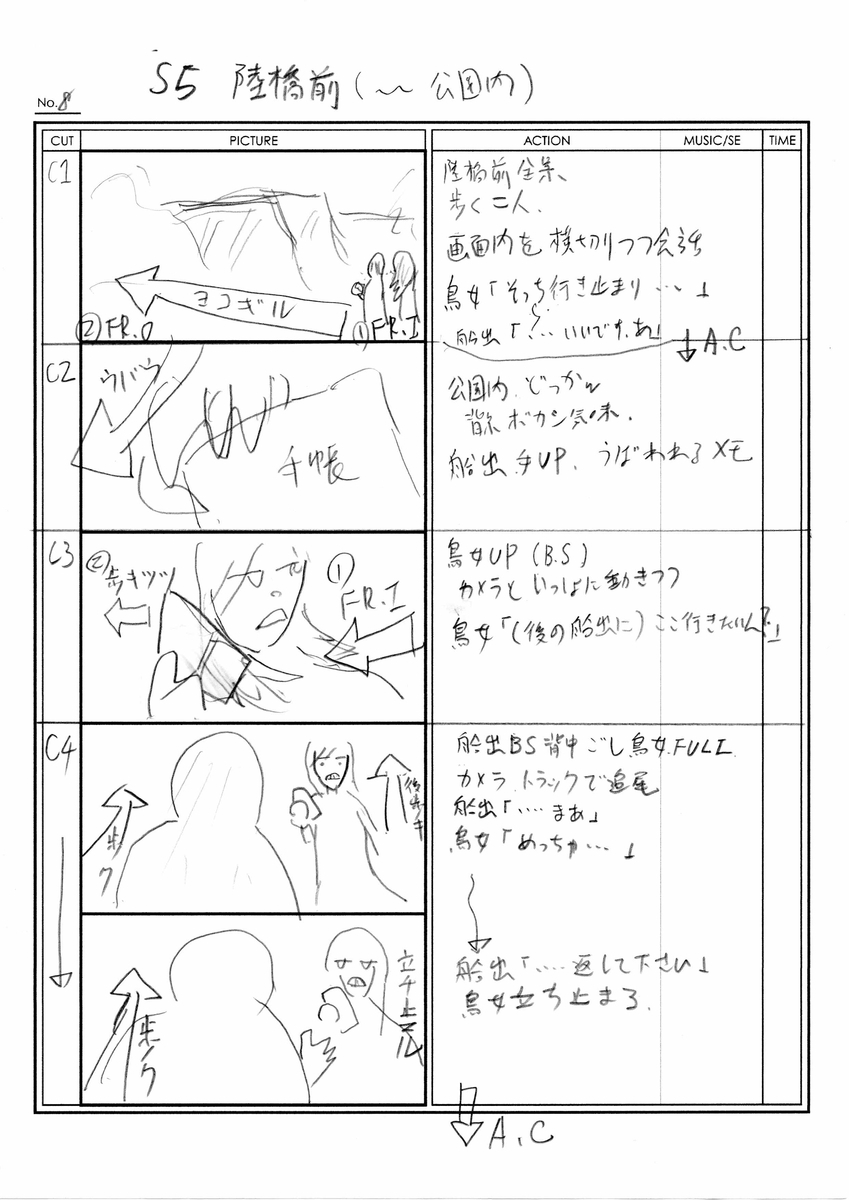 S5 陸橋前(〜公園内)
No. 8
CUT PICTURE ACTION MUSIC/SE TIME
C1
ヨコギル
②FR.O
①FR.I
陸橋前全景、
歩く二人.
画面内を横切りつつ会話
鳥女「そっち行き止まり…」
船出「?…いいですあ」
A.C
C2
ウバウ
手帳
公園内.どっかん
背景ボカシ気味.
船出 手UP. うばわれるメモ
C3
②歩キツツ
①FR.I
鳥女UP(B.S)
カメラといっしょに動きつつ
鳥女「(後の船出に)ここ行きたいん?」
C4
歩ク
後歩キ
船出BS背中ごし鳥女.FULL
カメラ.トラックで追尾
船出「‥‥まあ」
鳥女「めっちゃ…」
歩ク
立チ止マル
船出「‥‥返して下さい」
鳥女立ち止まる.
A.C